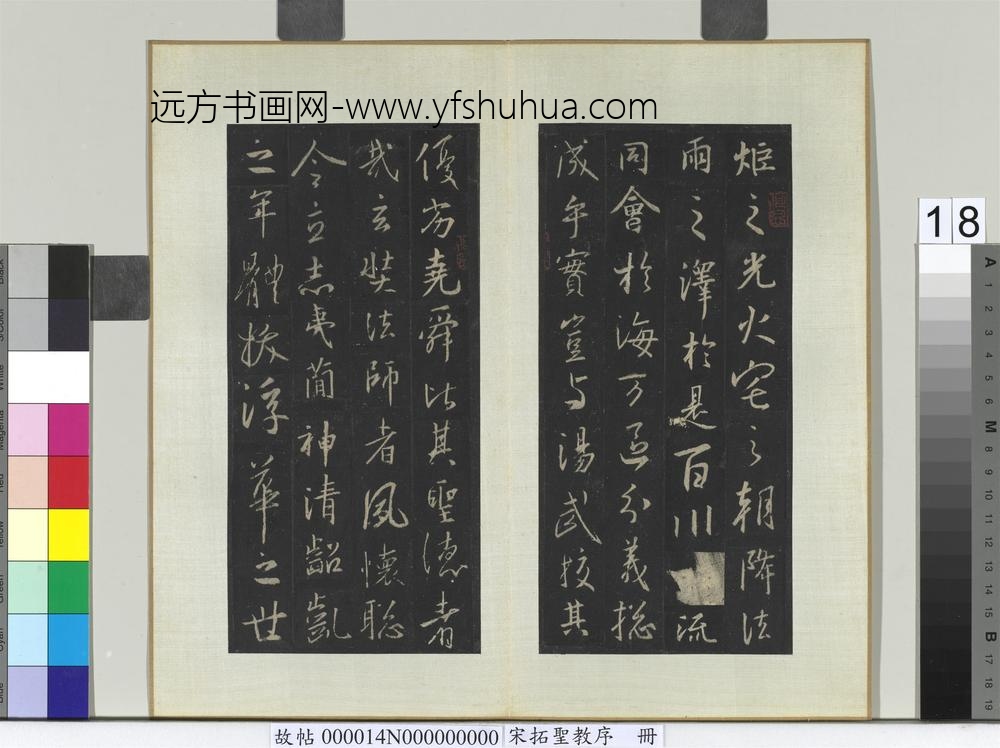 远方书画网-www.yfshuhua.com
炬之光火宅之朝降法
雨之澤於是百川 流
同會於海万區分義摠
成乎實豈與湯武挍其
優劣堯舜比其聖德者
哉玄奘法師者夙懷聡
令立志夷簡神清齠齓
之年體拔浮華之世
18
A
1
2
3
4
5
6
M
8
9
10
11
12
13
14
15
B
17
18
19
Black
3/Color
White
Magenta
Red
Yellow
Green
Cyan
Blue
故帖 000014N000000000 宋拓聖教序 冊